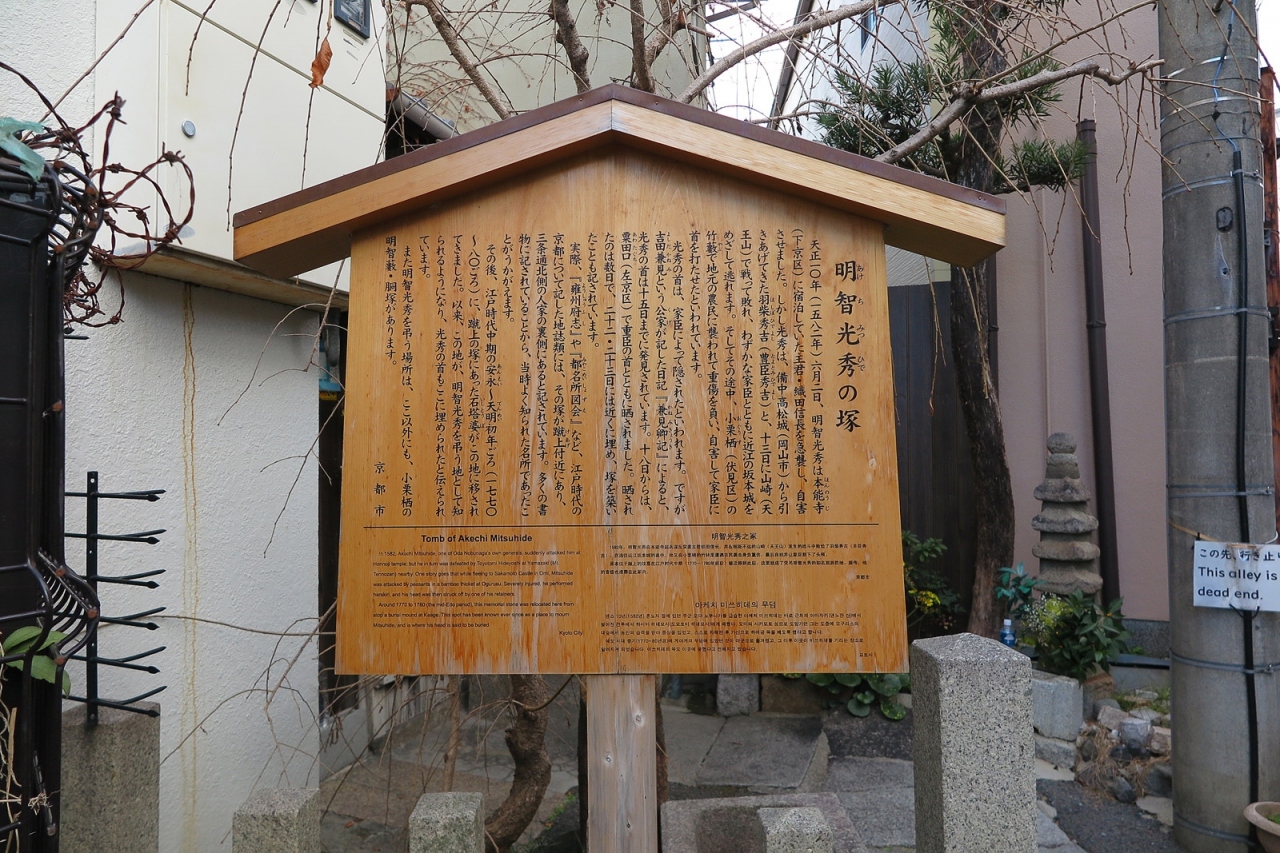 明智光秀の塚
あけ ち みつ ひで
天正一〇年(一五八二年)六月二日、明智光秀は本能寺
(下京区)に宿泊していた主君・織田信長を急襲し、自害
させました。しかし光秀は、備中高松城(岡山市)から引
きあげてきた羽柴秀吉(豊臣秀吉)と、十三日に山崎(天
王山)で戦って敗れ、わずかな家臣とともに近江の坂本城を
めざして逃れます。そしてその途中、小栗栖(伏見区)の
竹藪で地元の農民に襲われて重傷を負い、自害して家臣に
首を打たせたといわれています。
光秀の首は、家臣によって隠されたといわれます。ですが
吉田兼見という公家が記した日記『兼見卿記』によると、
光秀の首は十五日までに発見されています。十八日からは、
粟田口(左京区)で重臣の首とともに晒されました。晒され
たのは数日で、二十二・二十三日には近くに埋め、塚を築い
たことも記されています。
実際、『雍州府志』や『都名所図会』など、江戸時代の
京都について記した地誌類には、その塚が蹴上付近にあり、
三条通北側の人家の裏側にあると記されています。多くの書
物に記されていることから、当時よく知られた名所であったこ
とがうかがえます。
その後、江戸時代中期の安永〜天明初年ごろ(一七七〇
〜八〇ごろ)に、蹴上の塚にあった石塔婆がこの地に移され
てきました。以来、この地が、明智光秀を弔う地として知
られるようになり、光秀の首もここに埋められたと伝えられ
ています。
また明智光秀を弔う場所は、ここ以外にも、小栗栖の
明智藪・胴塚があります。
京都市
Tomb of Akechi Mitsuhide
In 1582, Akechi Mitsuhide, one of Oda Nobunaga's own generals, suddenly attacked him at
Honnoji temple, but he in turn was defeated by Toyotomi Hideyoshi at Yamazaki (Mt.
Tennozan) nearby. One story goes that while fleeing to Sakamoto Castle in Omi, Mitsuhide
was attacked by peasants in a bamboo thicket at Ogurusu. Severely injured, he performed
harakiri, and his head was then struck off by one of his retainers.
Around 1770 to 1780 (the mid-Edo period), this memorial stone was relocated here from
atop a burial mound at Keage. This spot has been known ever since as a place to mourn
Mitsuhide, and is where his head is said to be buried.
Kyoto City
明智光秀之冢
京都市
아케치 미쓰히데의 무덤
교토시
この先、行き止り
This alley is
dead end.